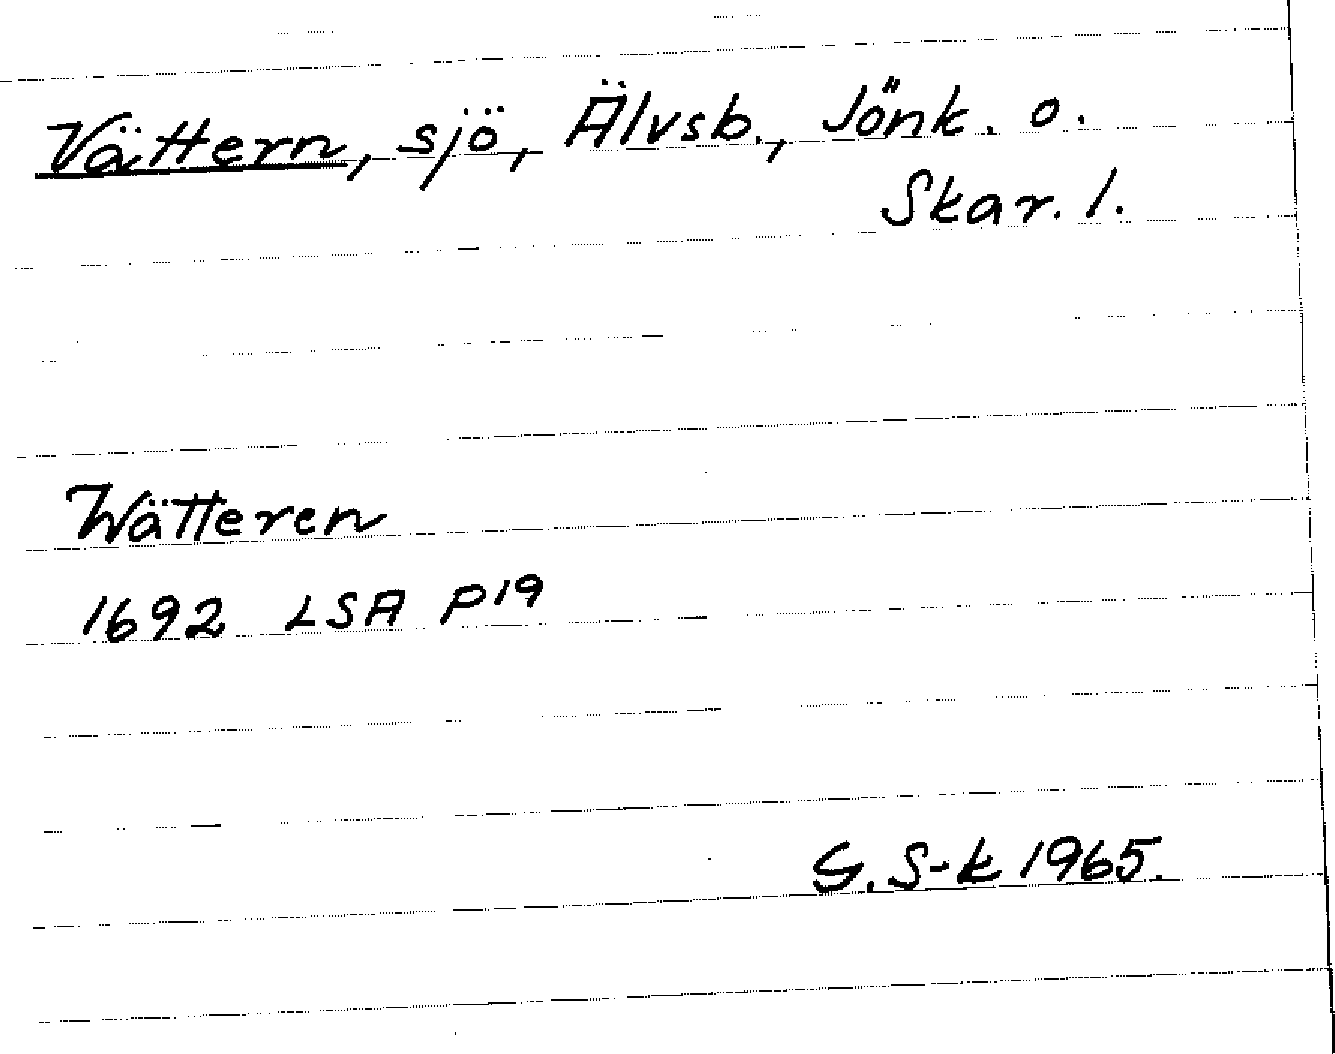 Vättern, sjö, Älvsb., Jönk. o.
Skar. l.
Wätteren
1692 LSA P19
G. S-k 1965.